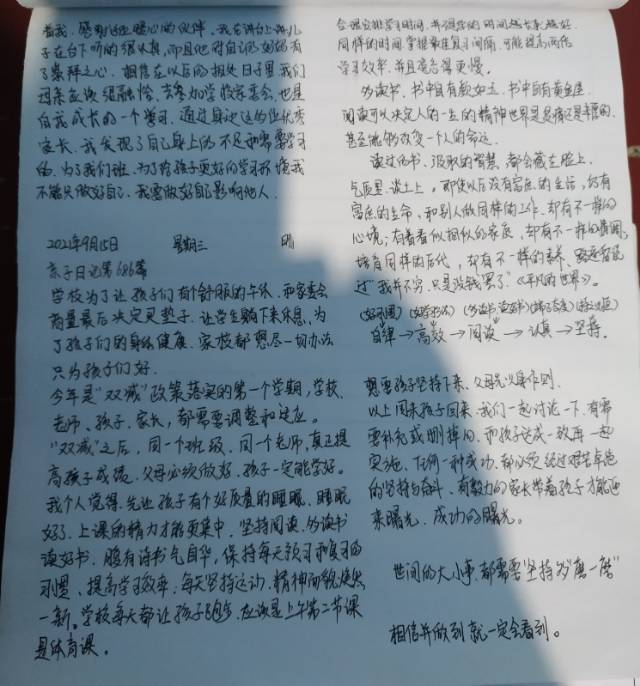 着我，感谢这些暖心的伙伴，我在讲台上讲，儿
子在台下听的很认真，而且他对自己妈妈有
了崇拜之心，相信在以后的相处日子里，我们
母亲应该很融洽，去参加学校家委会，也是
自我成长的一个学习，通过身边这些优秀
家长，我发现了自己身上的不足和需要学习
的，为了我们班，为了给孩子更好的学习环境我
不能只做好自己，我要做好自己影响他人。
2021年9月15日 星期三 晴
亲子日记第686篇
学校为了让孩子们有个舒服的午休，和家委会
商量最后决定买垫子，让学生躺下来休息，为
了孩子们的身体健康，家校都想尽一切办法
只为孩子们好。
今年是“双减”政策落实的第一个学期，学校、
老师、孩子、家长，都需要调整和适应。
“双减”之后，同一个班级，同一个老师，真正提
高孩子成绩，父母必须做好，孩子一定能学好。
我个人觉得，先让孩子有个好质量的睡眠，睡眠
好了，上课的精力才能更集中，坚持阅读，多读书
读好书，腹有诗书气自华，保持每天预习和复习的
习惯，提高学习效率，每天坚持运动，精神面貌焕然
一新。学校每天都让孩子跑步，应该是上午第二节课
是体育课。
合理安排学习时间，
同样的时间，掌握乘住复习间隔，可能提高两倍
学习效率，并且遗忘得更慢。
多读书，书中自有颜如玉，书中自有黄金屋，
阅读可以决定人的一生的精神世界是贫瘠还是丰厚的，
甚至能够改变一个人的命运。
读过的书，汲取的智慧，都会藏在脸上，
气质里，谈吐上。即使以后没有富足的生活，仍有
富足的生命，和别人做同样的工作，却有不一样的
心境；有着看似相似的家庭，却有不一样的氛围，
培育同样的后代，却有不一样的素养，
过“我并不穷，只是没钱罢了”《平凡的世界》。
自律→高效→阅读→认真→坚持。
想要孩子坚持下来，父母先以身作则，
以上周末孩子回来，我们一起讨论一下，有需
要补充或删掉的，和孩子达成一致再一起
实施，任何一种成功，都必须经过艰苦卓绝
的坚持与奋斗，有毅力的家长带着孩子才能迎
来曙光，成功的曙光。
世间的大小事，都需要“坚持”多“磨一磨”
相信并做到就一定会看到。